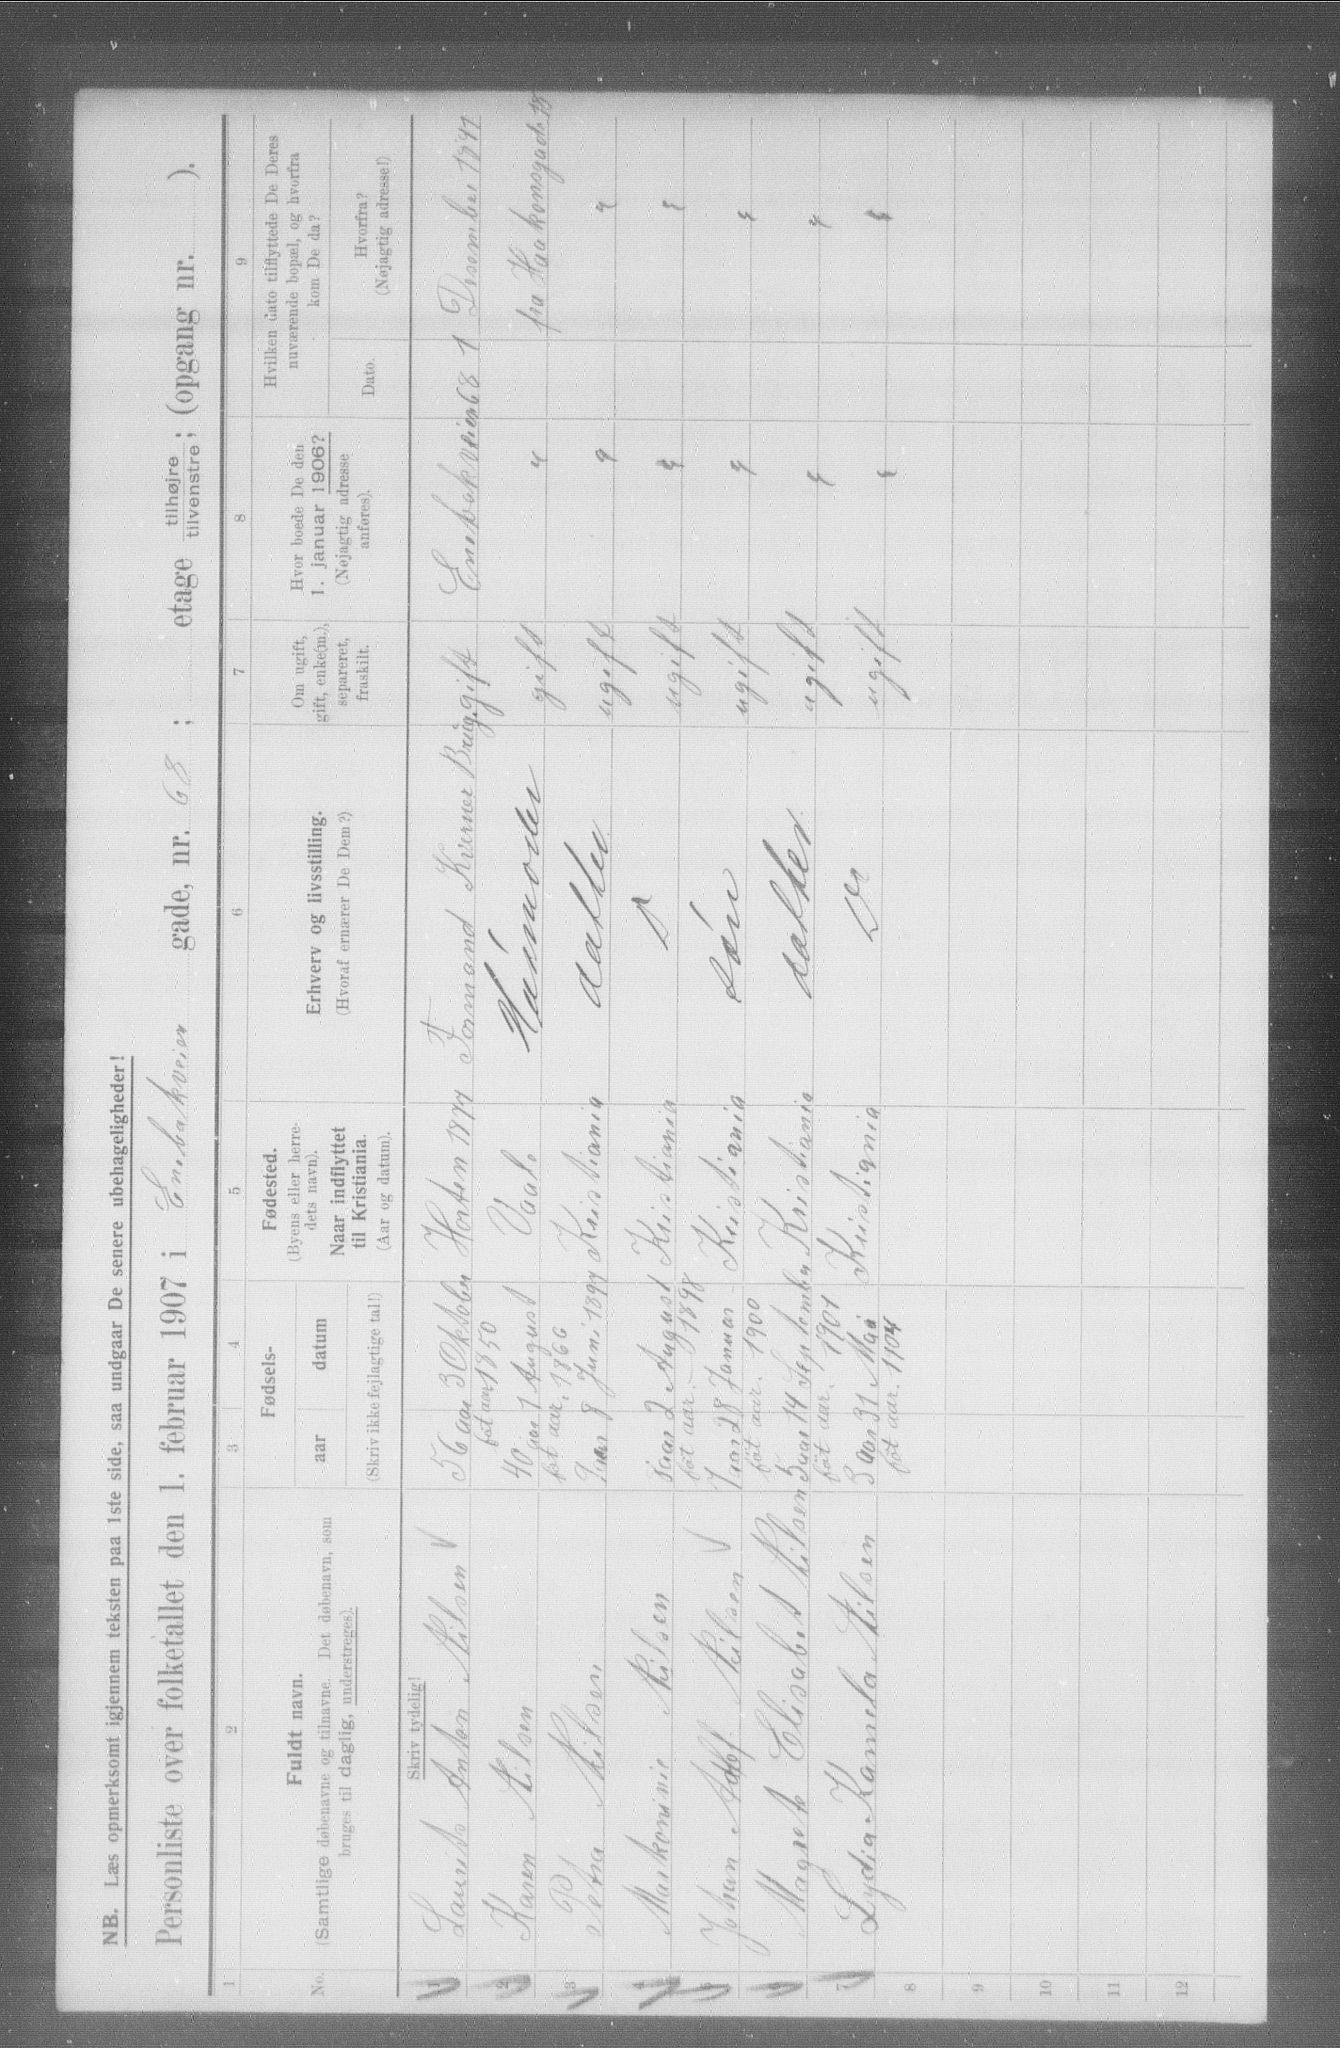 NB. Læs opmerksomt igjennem teksten paa 1ste side, saa undgaar De senere ubehageligheder!
Personliste over folketallet den 1. februar 1907 i Enebakveien gade, nr. 68; etage tilhøjre tilvenstre; (opgang nr. ).
1 2 3 4 5 6 7 8 9
No.
Fuldt navn.
(Samtlige døbenavne og tilnavne. Det døbenavn, som
bruges til daglig, understreges).
Skriv tydelig!
Fødsels-
aar datum
(Skriv ikke fejlagtige tal!)
Fødested.
(Byens eller herre-
dets navn).
Naar indflyttet
til Kristiania.
(Aar og datum).
Erhverv og livsstilling.
(Hvoraf ernærer De Dem?)
Om ugift,
gift, enke(m.),
separeret,
fraskilt.
Hvor boede De den
1. januar 1906?
(Nøjagtig adresse
anføres).
Hvilken dato tilflyttede De Deres
nuværende bopæl, og hvorfra
kom De da?
Dato.
Hvorfra?
(Nøjagtig adresse!)
1 Laurits Anton Nilsen 56 aar 3 Oktober Horten 1877 Formand Kverner Brug gift Enebakveien 68 1 Desember
føt aar 1850
2 Karen Nilsen 40 aar 1 August Vaale Húsmoder gift " fra Haakonsgade 18
føt aar. 1866
3 Petra Nilsen 8 Juni 1897 Kristiania datter ugift " "
4 Nilsen 8 aar 2 August Kristiania D ugift " "
føt aar. 1898
5 Johan Adolf Nilsen 7 aar 28 Januar Kristiania søn ugift " "
føt aar. 1900
6 Magrete Elisabet Nilsen 5 aar 14 September Kristiania datter ugift " "
føt aar. 1901
7 Lydia Kamela Nilsen 3 aar 31 Mai Kristiania Do ugift " "
føt aar. 1104
8
9
10
11
12